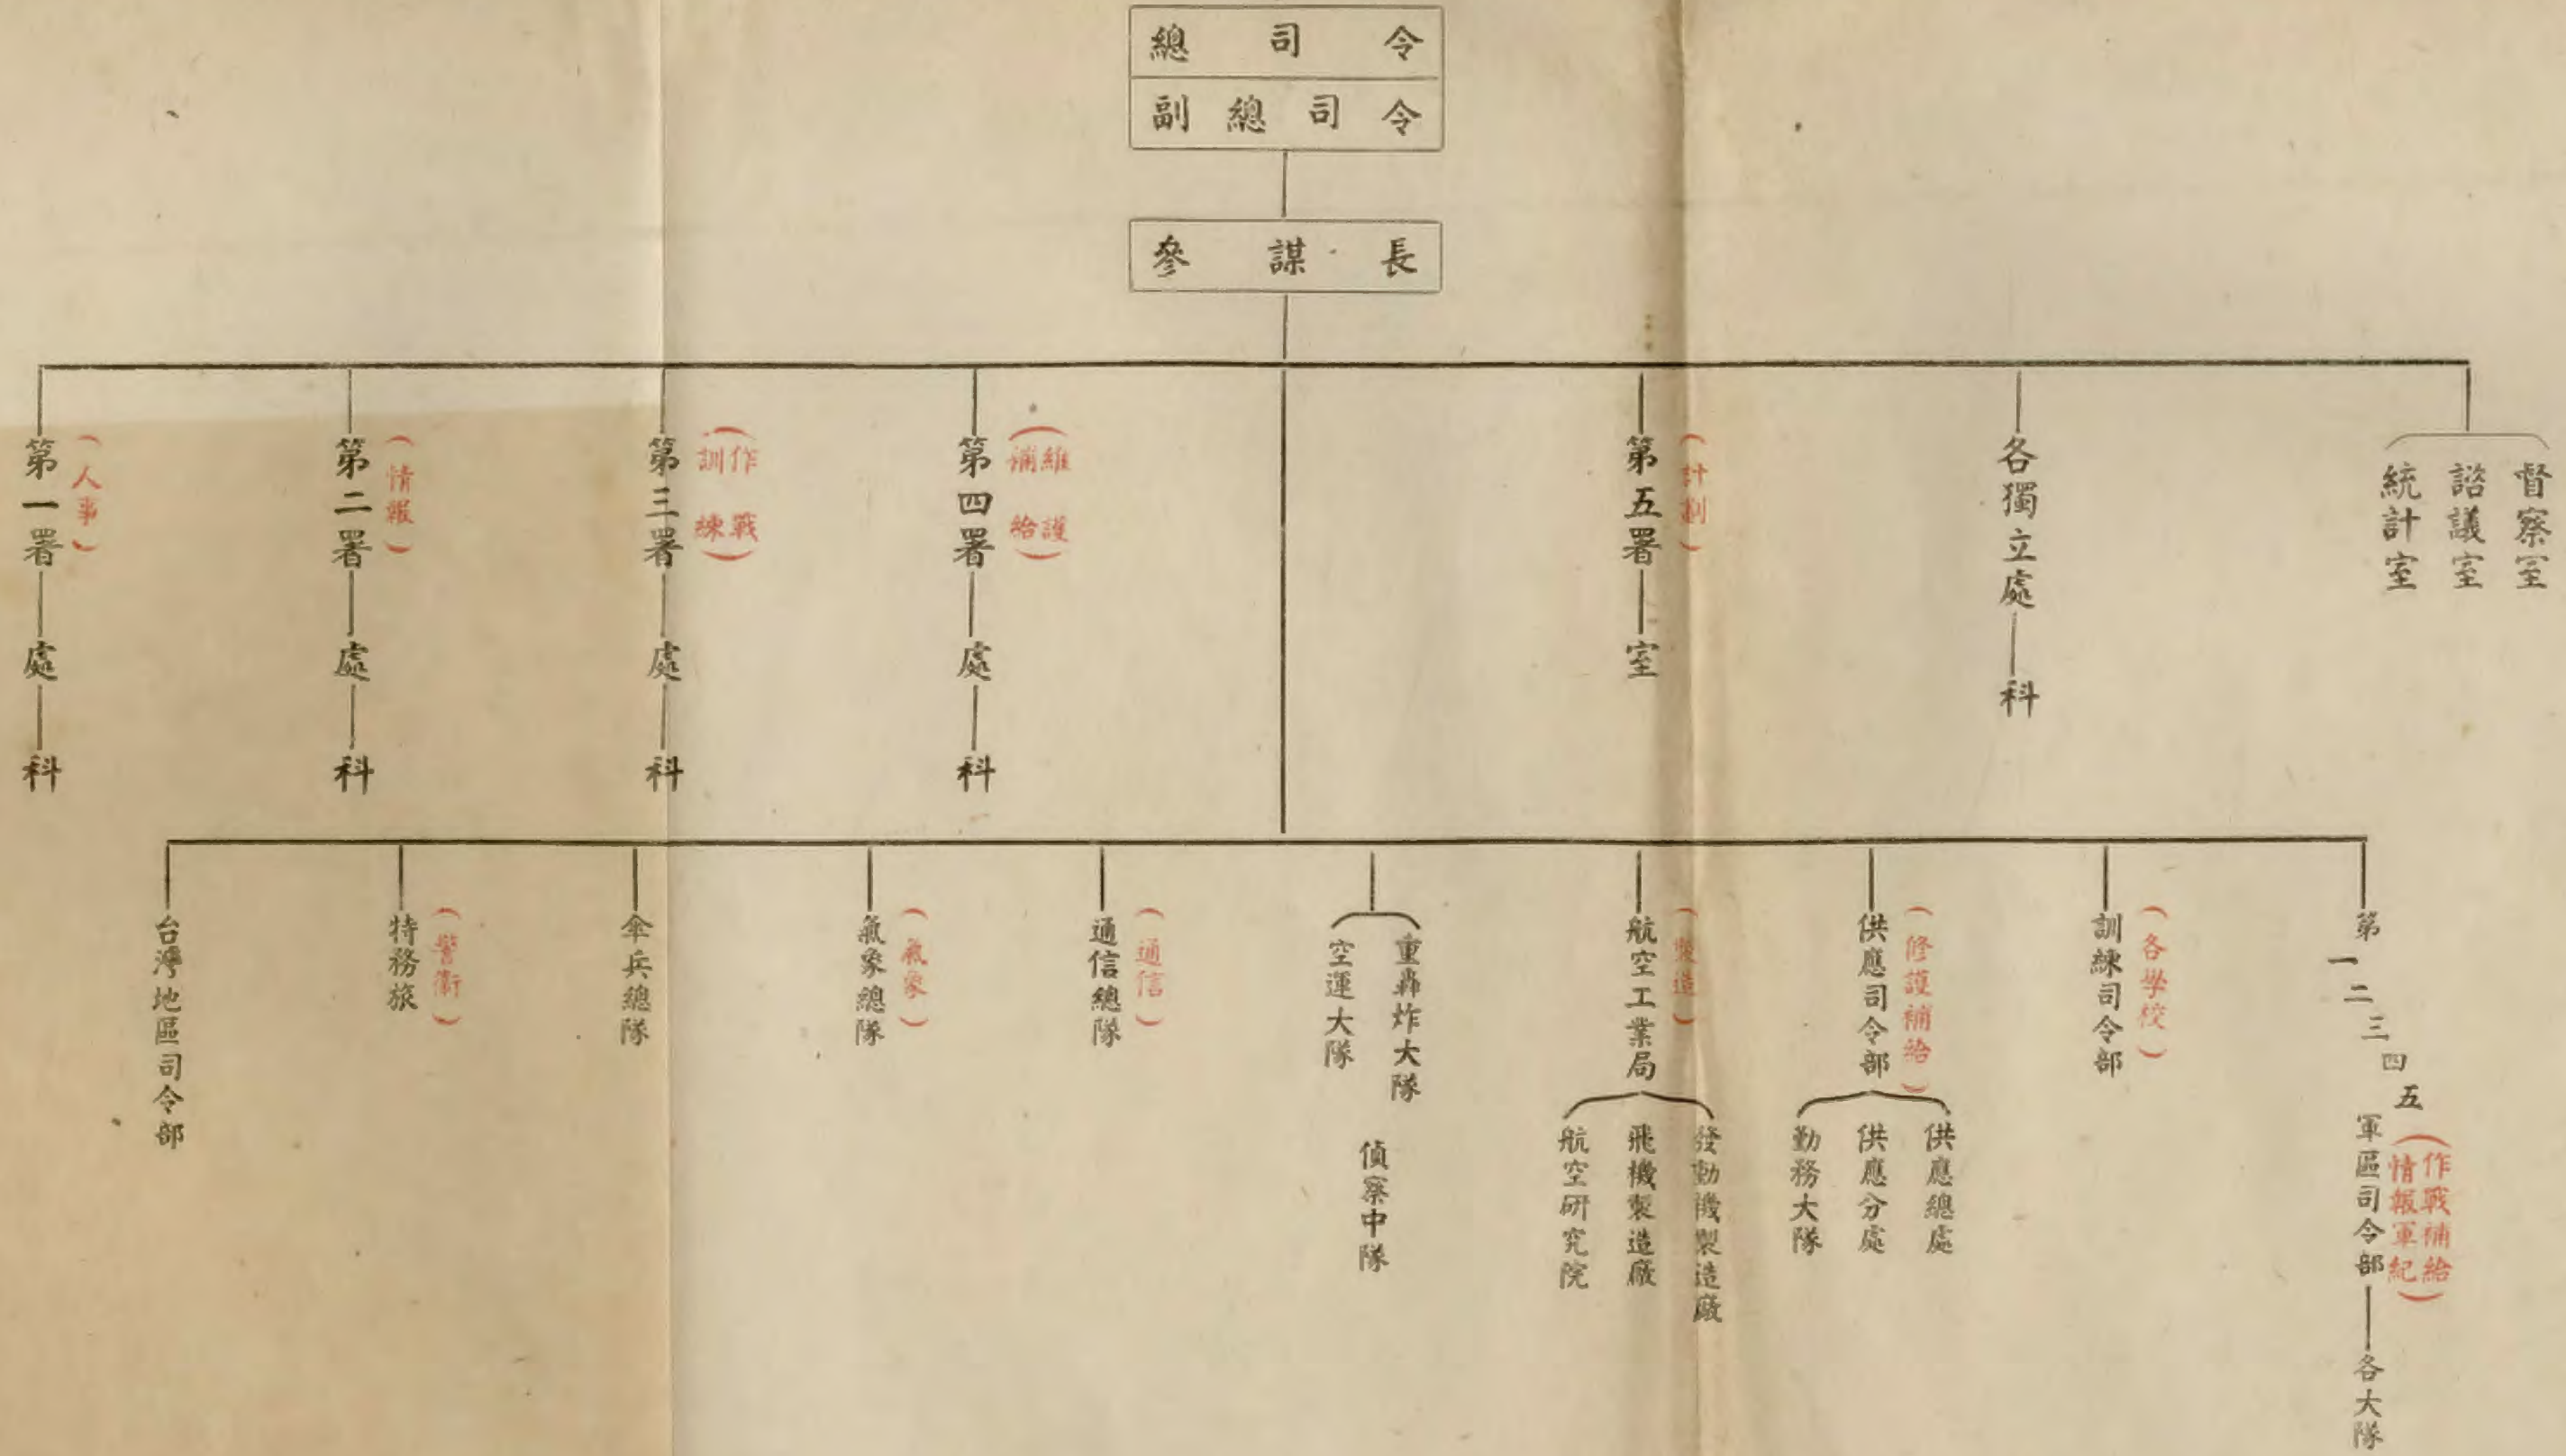 總司令
副總司令
參謀長
督察室
諮議室
統計室
各獨立處
科
第五署
(計劃)
室
第四署
(維護
補給)
處
科
第三署
(作戰
訓練)
處
科
第二署
(情報)
處
科
第一署
(人事)
處
科
第一二三四五軍區司令部
(作戰補給
情報軍紀)
各大隊
訓練司令部
(各學校)
供應司令部
(修護補給)
供應總處
供應分處
勤務大隊
航空工業局
(製造)
發動機製造廠
飛機製造廠
航空研究院
重轟炸大隊
空運大隊
偵察中隊
通信總隊
(通信)
氣象總隊
(氣象)
傘兵總隊
特務旅
(警衛)
台灣地區司令部